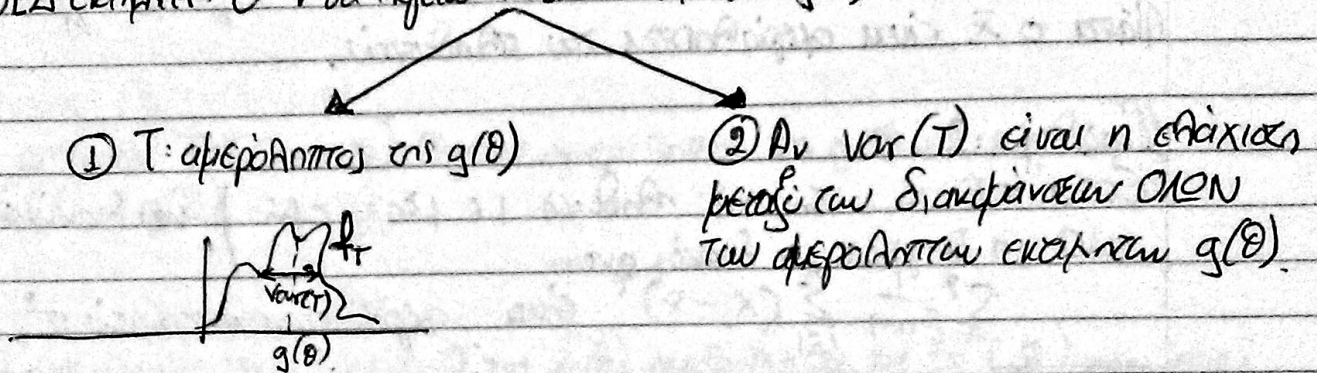 ① Τ: αμερόληπτος της g(θ)
② Αν Var(T) είναι η ελάχιστη
μεταξύ των διακυμάνσεων ΟΛΩΝ
των αμερόληπτων εκτιμητών g(θ).
f_T
Var(T)
g(θ)